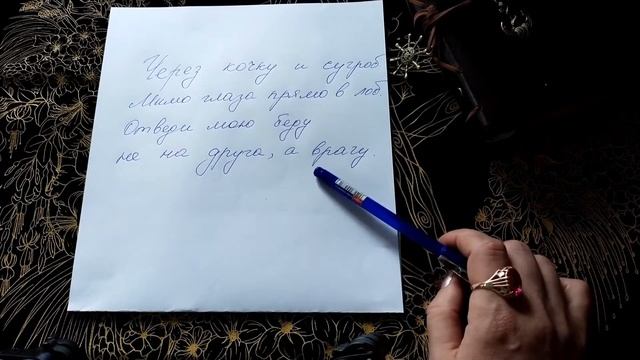 Через кочку и сугроб.
Мимо глаза прямо в лоб.
Отведи мою беду
не на друга, а врагу.